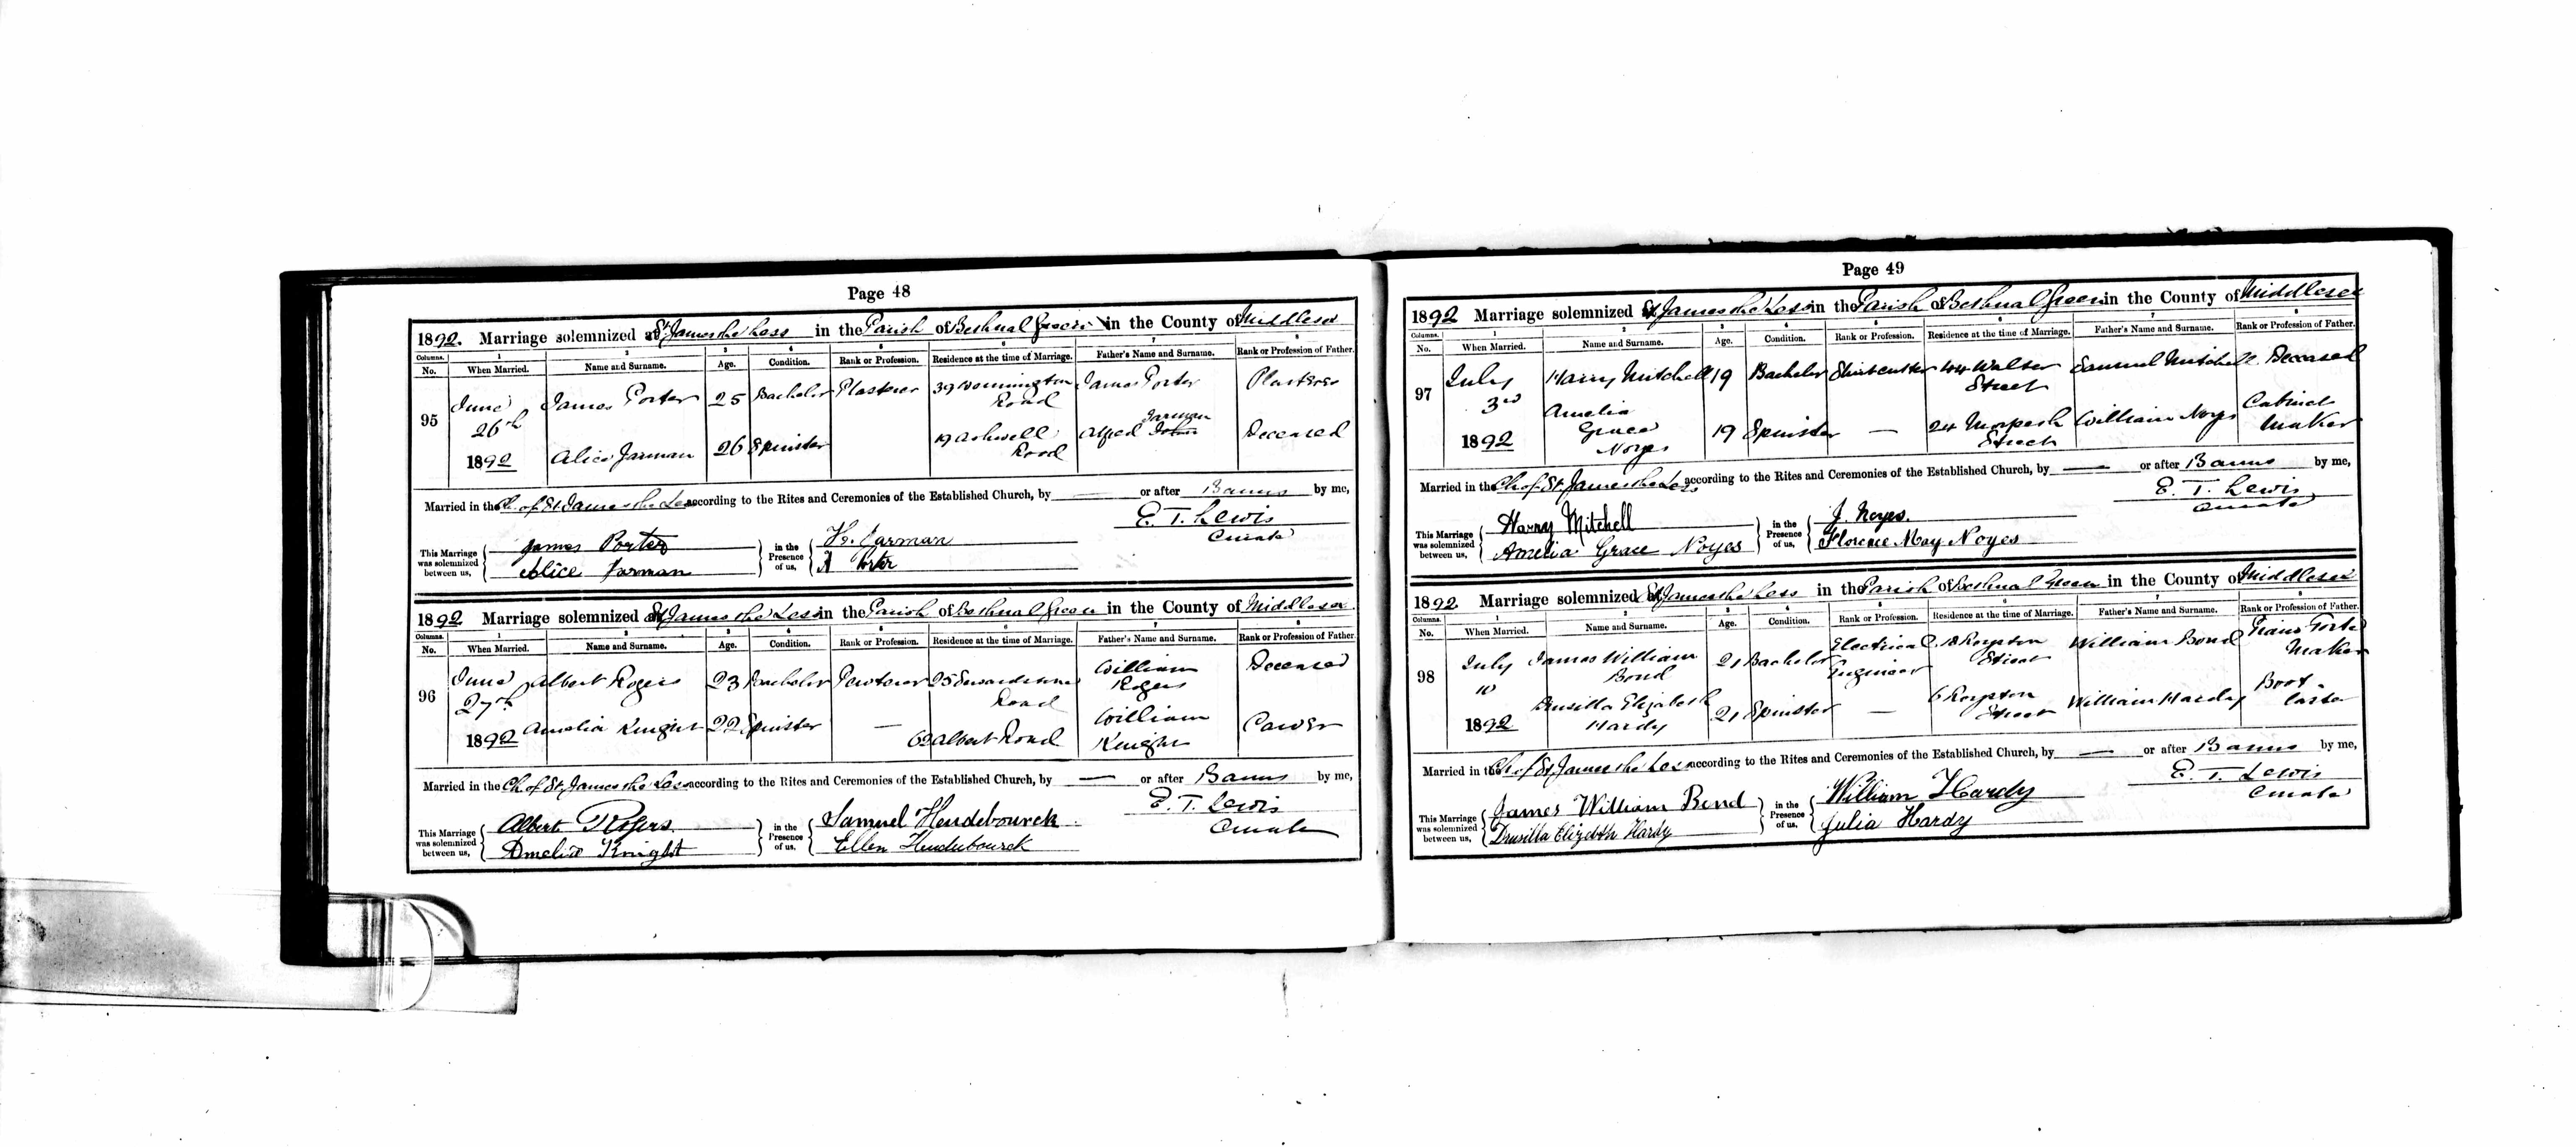 Page 48
1892. Marriage solemnized at St James the Less in the Parish of Bethnal Green in the County of Middlesex
Columns. 1 2 3 4 5 6 7 8
No. When Married. Name and Surname. Age. Condition. Rank or Profession. Residence at the time of Marriage. Father's Name and Surname. Rank or Profession of Father.
95 June 26th 1892 James Porter 25 Bachelor Plasterer 39 Bonnington Road James Porter Plasterer
Alice Jarman 26 Spinster 19 Ashwell Road Alfred Jarman Deceased
Married in the Ch. of St James the Less according to the Rites and Ceremonies of the Established Church, by — or after Banns by me,
E. T. Lewis
Curate
This Marriage was solemnized between us, James Porter Alice Jarman in the Presence of us, H. Jarman A Porter
1892 Marriage solemnized at St James the Less in the Parish of Bethnal Green in the County of Middlesex
Columns. 1 2 3 4 5 6 7 8
No. When Married. Name and Surname. Age. Condition. Rank or Profession. Residence at the time of Marriage. Father's Name and Surname. Rank or Profession of Father.
96 June 27th 1892 Albert Rogers 23 Bachelor Pewterer 25 Road William Rogers Deceased
Amelia Knight 22 Spinster — 62 Albert Road William Knight Carver
Married in the Ch. of St James the Less according to the Rites and Ceremonies of the Established Church, by — or after Banns by me,
E. T. Lewis
Curate
This Marriage was solemnized between us, Albert Rogers Amelia Knight in the Presence of us, Samuel Hendebourck Ellen Hendebourck
Page 49
1892 Marriage solemnized at St James the Less in the Parish of Bethnal Green in the County of Middlesex
Columns. 1 2 3 4 5 6 7 8
No. When Married. Name and Surname. Age. Condition. Rank or Profession. Residence at the time of Marriage. Father's Name and Surname. Rank or Profession of Father.
97 July 3rd 1892 Harry Mitchell 19 Bachelor Shirtcutter 44 Walter Street Samuel Mitchell Deceased
Amelia Grace Noyes 19 Spinster — 24 Morpeth Street William Noyes Cabinet Maker
Married in the Ch of St James the Less according to the Rites and Ceremonies of the Established Church, by — or after Banns by me,
E. T. Lewis
Curate
This Marriage was solemnized between us, Harry Mitchell Amelia Grace Noyes in the Presence of us, J. Noyes. Florence May Noyes
1892 Marriage solemnized at St James the Less in the Parish of Bethnal Green in the County of Middlesex
Columns. 1 2 3 4 5 6 7 8
No. When Married. Name and Surname. Age. Condition. Rank or Profession. Residence at the time of Marriage. Father's Name and Surname. Rank or Profession of Father.
98 July 10 1892 James William Bond 21 Bachelor Electrical Engineer 18 Royston Street William Bond Piano Forte Maker
Drusilla Elizabeth Hardy 21 Spinster — 6 Royston Street William Hardy Boot laster
Married in the Ch. of St James the Less according to the Rites and Ceremonies of the Established Church, by — or after Banns by me,
E. T. Lewis
Curate
This Marriage was solemnized between us, James William Bond Drusilla Elizabeth Hardy in the Presence of us, William Hardy Julia Hardy